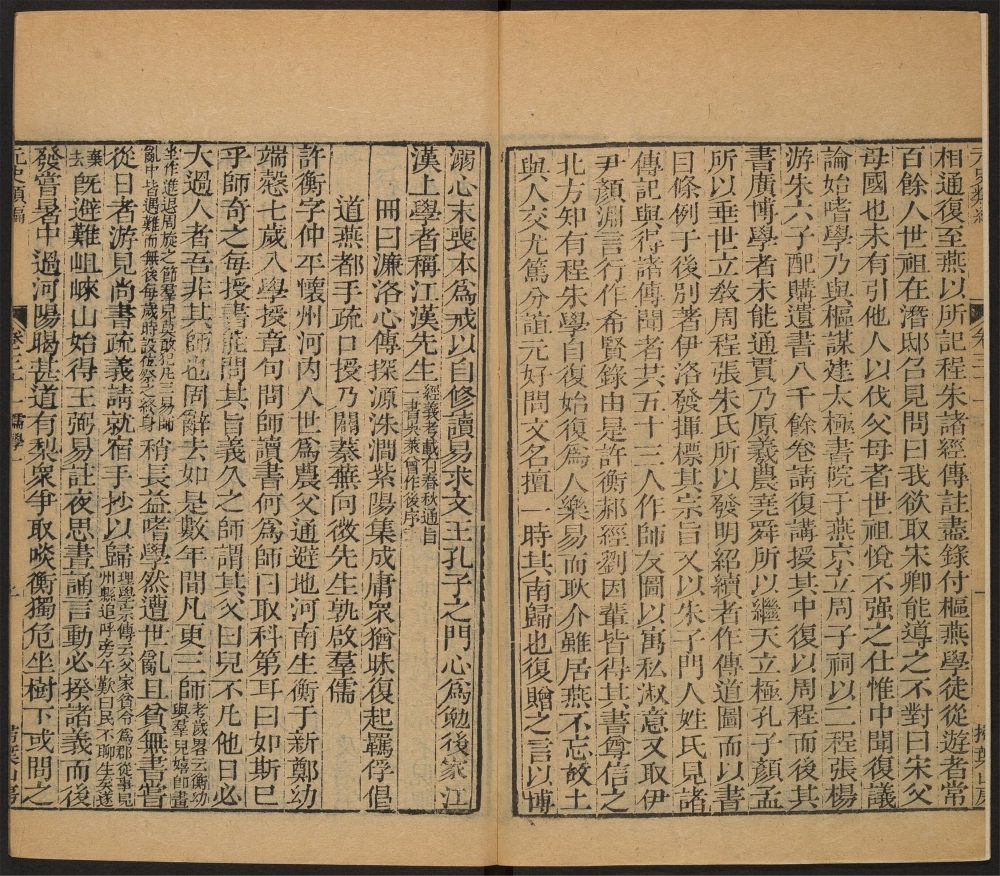 相通復至燕以所記程朱諸經傳註盡錄付樞燕學徒從遊者常
百餘人世祖在潛邸召見問曰我欲取宋卿能導之不對曰宋父
母國也未有引他人以伐父母者世祖悅不强之仕惟中聞復議
論始嗜學乃與樞謀建太極書院于燕京立周子祠以二程張楊
游朱六子配購遺書八千餘卷請復講授其中復以周程而後其
書廣博學者未能通貫乃原羲農堯舜所以繼天立極孔子顏孟
所以垂世立敎周程張朱氏所以發明紹續者作傳道圖而以書
目條例于後別著伊洛發揮標其宗旨又以朱子門人姓氏見諸
傳記與得諸傳聞者共五十三人作師友圖以寓私淑意又取伊
尹顏淵言行作希賢錄由是許衡郝經劉因輩皆得其書尊信之
北方知有程朱學自復始復爲人樂易而耿介雖居燕不忘故土
與人交尤篤分誼元好問文名擅一時其南歸也復贈之言以博
溺心末喪本爲戒以自修讀易求文王孔子之門心爲勉後家江
漢上學者稱江漢先生經義考載有春秋通旨一書吳萊曾作後序
冊曰濂洛心傳探源洙澗紫陽集成庸衆猶昧復起羈俘倡
道燕都手疏口授乃闢蓁蕪向微先生孰啟羣儒
許衡字仲平懷州河内人世爲農父通避地河南生衡于新鄭幼
端慤七歲入學授章句問師讀書何爲師曰取科第耳曰如斯已
乎師奇之每授書能問其旨義久之師謂其父曰兒不凡他日必
大過人者吾非其師也固辭去如是數年間凡更三師考歲畧云衡幼與羣兒嬉自畫
坐作進退周旋之節羣兒莫敢犯凡三易師亂中皆遇難而無後每歲時設位祭之終身稍長益嗜學然遭世亂且貧無書嘗
從日者游見尚書疏義請就宿手抄以歸理學宗傳云父家貧令爲郡從事見州縣追呼旁午歎曰民不聊生矣遂
棄去旣避難岨崍山始得王弼易註夜思晝誦言動必揆諸義而後
發嘗暑中過河陽暍甚道有梨衆爭取啖衡獨危坐樹下或問之
元史類編
卷三十一 儒學